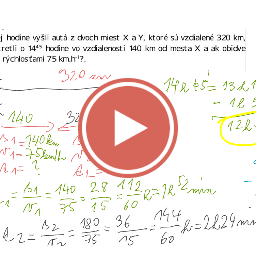 j hodine vyšli autá z dvoch miest X a Y, ktoré sú vzdialené 320 km,
retli o 14⁴⁵ hodine vo vzdialenosti 140 km od mesta X a ak obidve
rýchlosťami 75 km.h⁻¹?
320 km
14h 45' = 13h
- 1h 5
140
12h
s₁ = 140km
v₁ = 75km/h
t₁ =
= s₁/v₁ = 140/75 = 28/15 = 112/60 h = 1h 52 min
t₂ = s₂/v₂ = 180/75 = 36/15 = 144/60 h = 2h 24 min